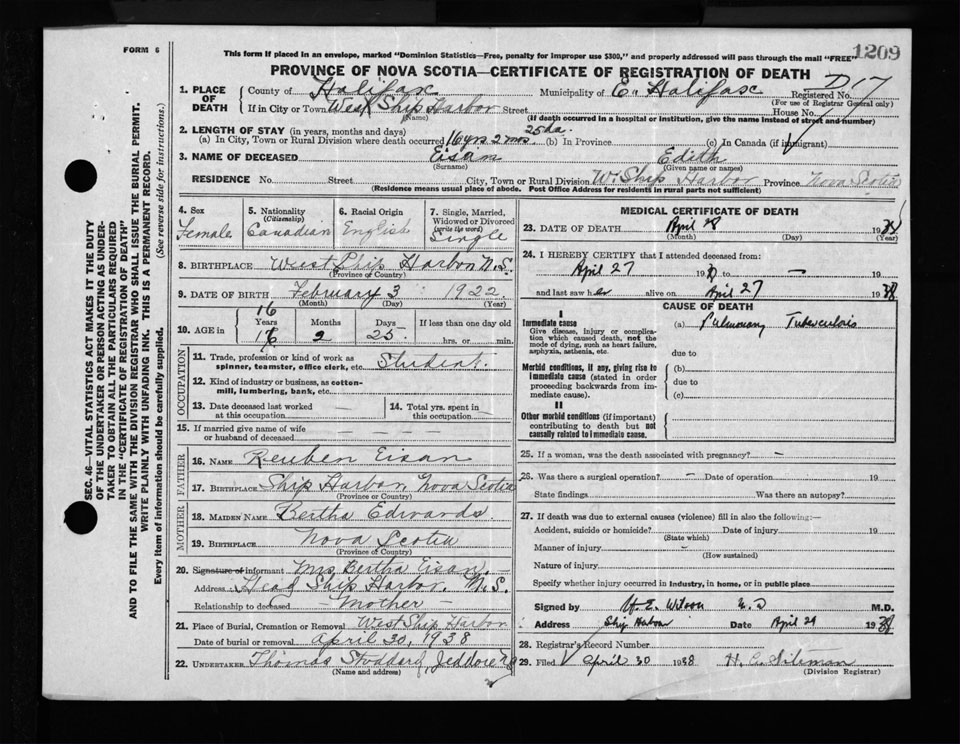 FORM 6
This form if placed in an envelope, marked "Dominion Statistics—Free, penalty for improper use $300," and properly addressed will pass through the mail "FREE"
1209
PROVINCE OF NOVA SCOTIA—CERTIFICATE OF REGISTRATION OF DEATH
1. PLACE OF DEATH County of Halifax Municipality of E. Halifax Registered No. D17
(For use of Registrar General only)
If in City or Town West Ship Harbor Street House No.
(Name) (If death occurred in a hospital or institution, give the name instead of street and number)
2. LENGTH OF STAY (in years, months and days)
(a) In City, Town or Rural Division where death occurred 16 yrs 2 mos 25 da. (b) In Province (c) In Canada (if immigrant)
3. NAME OF DECEASED Eisan Edith
(Surname) (Given name or names)
RESIDENCE No. Street City, Town or Rural Division W. Ship Harbor Province Nova Scotia
(Residence means usual place of abode. Post Office Address for residents in rural parts not sufficient)
SEC. 46—VITAL STATISTICS ACT MAKES IT THE DUTY
OF THE UNDERTAKER OR PERSON ACTING AS UNDER-
TAKER TO OBTAIN ALL THE PARTICULARS REQUIRED
IN THE "CERTIFICATE OF REGISTRATION OF DEATH"
AND TO FILE THE SAME WITH THE DIVISION REGISTRAR WHO SHALL ISSUE THE BURIAL PERMIT.
WRITE PLAINLY WITH UNFADING INK. THIS IS A PERMANENT RECORD.
Every item of information should be carefully supplied. (See reverse side for instructions.)
4. Sex
Female
5. Nationality
(Citizenship)
Canadian
6. Racial Origin
English
7. Single, Married,
Widowed or Divorced
(write the word)
Single
8. BIRTHPLACE West Ship Harbor N.S.
(Province or Country)
9. DATE OF BIRTH February 3 1922
(Month) (Day) (Year)
10. AGE in 16 Years 2 Months 25 Days If less than one day old
hrs. or min.
OCCUPATION
11. Trade, profession or kind of work as
spinner, teamster, office clerk, etc. Student.
12. Kind of industry or business, as cotton-
mill, lumbering, bank, etc.
13. Date deceased last worked
at this occupation
14. Total yrs. spent in
this occupation
15. If married give name of wife
or husband of deceased
FATHER
16. NAME Reuben Eisan
17. BIRTHPLACE Ship Harbor Nova Scotia
(Province or Country)
MOTHER
18. MAIDEN NAME Bertha Edwards
19. BIRTHPLACE Nova Scotia
(Province of Country)
20. Signature of informant Mrs Bertha Eisan
Address Head Ship Harbor. N.S.
Relationship to deceased – Mother –
21. Place of Burial, Cremation or Removal West Ship Harbor
Date of burial or removal April 30, 1938
22. UNDERTAKER Thomas Jeddore
(Name and address)
MEDICAL CERTIFICATE OF DEATH
23. DATE OF DEATH April 28 1938
(Month) (Day) (Year)
24. I HEREBY CERTIFY that I attended deceased from:
April 27 19 to —
and last saw her alive on April 27 1938
CAUSE OF DEATH
I
Immediate cause
Give disease, injury or complica-
tion which caused death, not the
mode of dying, such as heart failure,
asphyxia, asthenia, etc.
(a) Pulmonary Tuberculosis
due to
Morbid conditions, if any, giving rise to
immediate cause (stated in order
proceeding backwards from im-
mediate cause).
(b)
due to
(c)
II
Other morbid conditions (if important)
contributing to death but not
causally related to immediate cause.
25. If a woman, was the death associated with pregnancy? –
26. Was there a surgical operation? – Date of operation 19
State findings Was there an autopsy?
27. If death was due to external causes (violence) fill in also the following:–
Accident, suicide or homicide? Date of injury 19
(State which)
Manner of injury –
(How sustained)
Nature of injury
Specify whether injury occurred in industry, in home, or in public place
Signed by Wilson M.D.
Address Ship Harbour Date April 29 1938
28. Registrar's Record Number
29. Filed April 30 1938 H. C.
(Division Registrar)